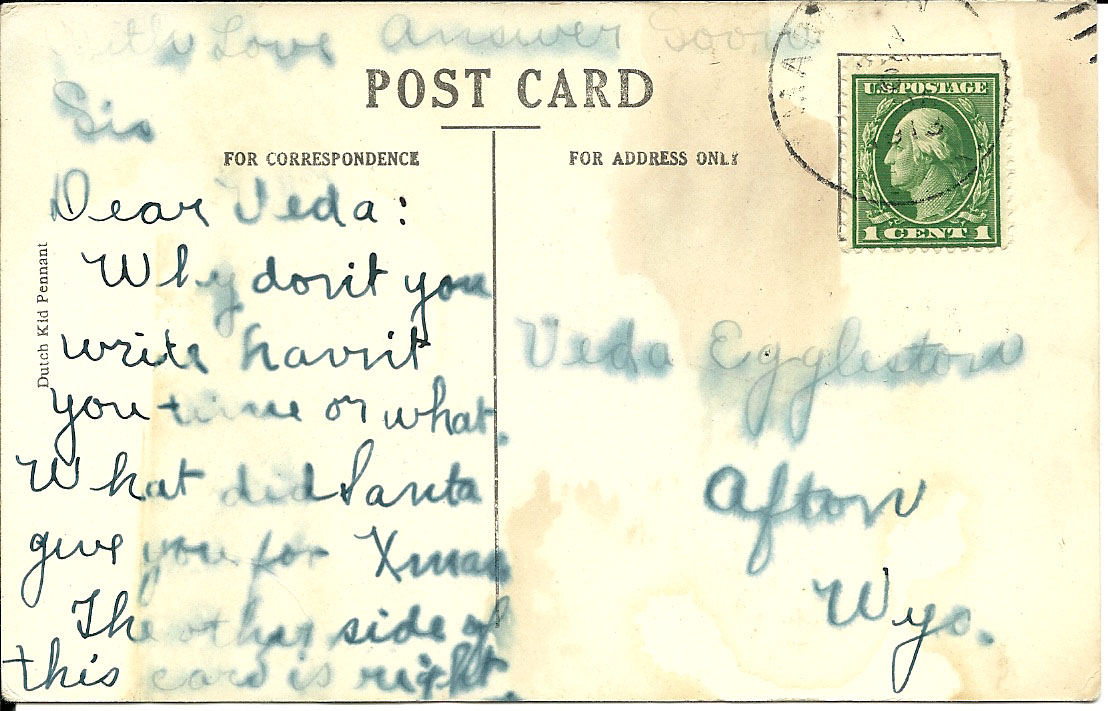 With Love Answer Soon
Sis
POST CARD
FOR CORRESPONDENCE
FOR ADDRESS ONLY
U.S. POSTAGE
1 CENT 1
1913
Dutch Kid Pennant
Dear Veda:
Why don't you
write havn't
you time or what.
What did Santa
give you for Xmas
The other side of
this card is right.
Veda Eggleston
Afton
Wyo.